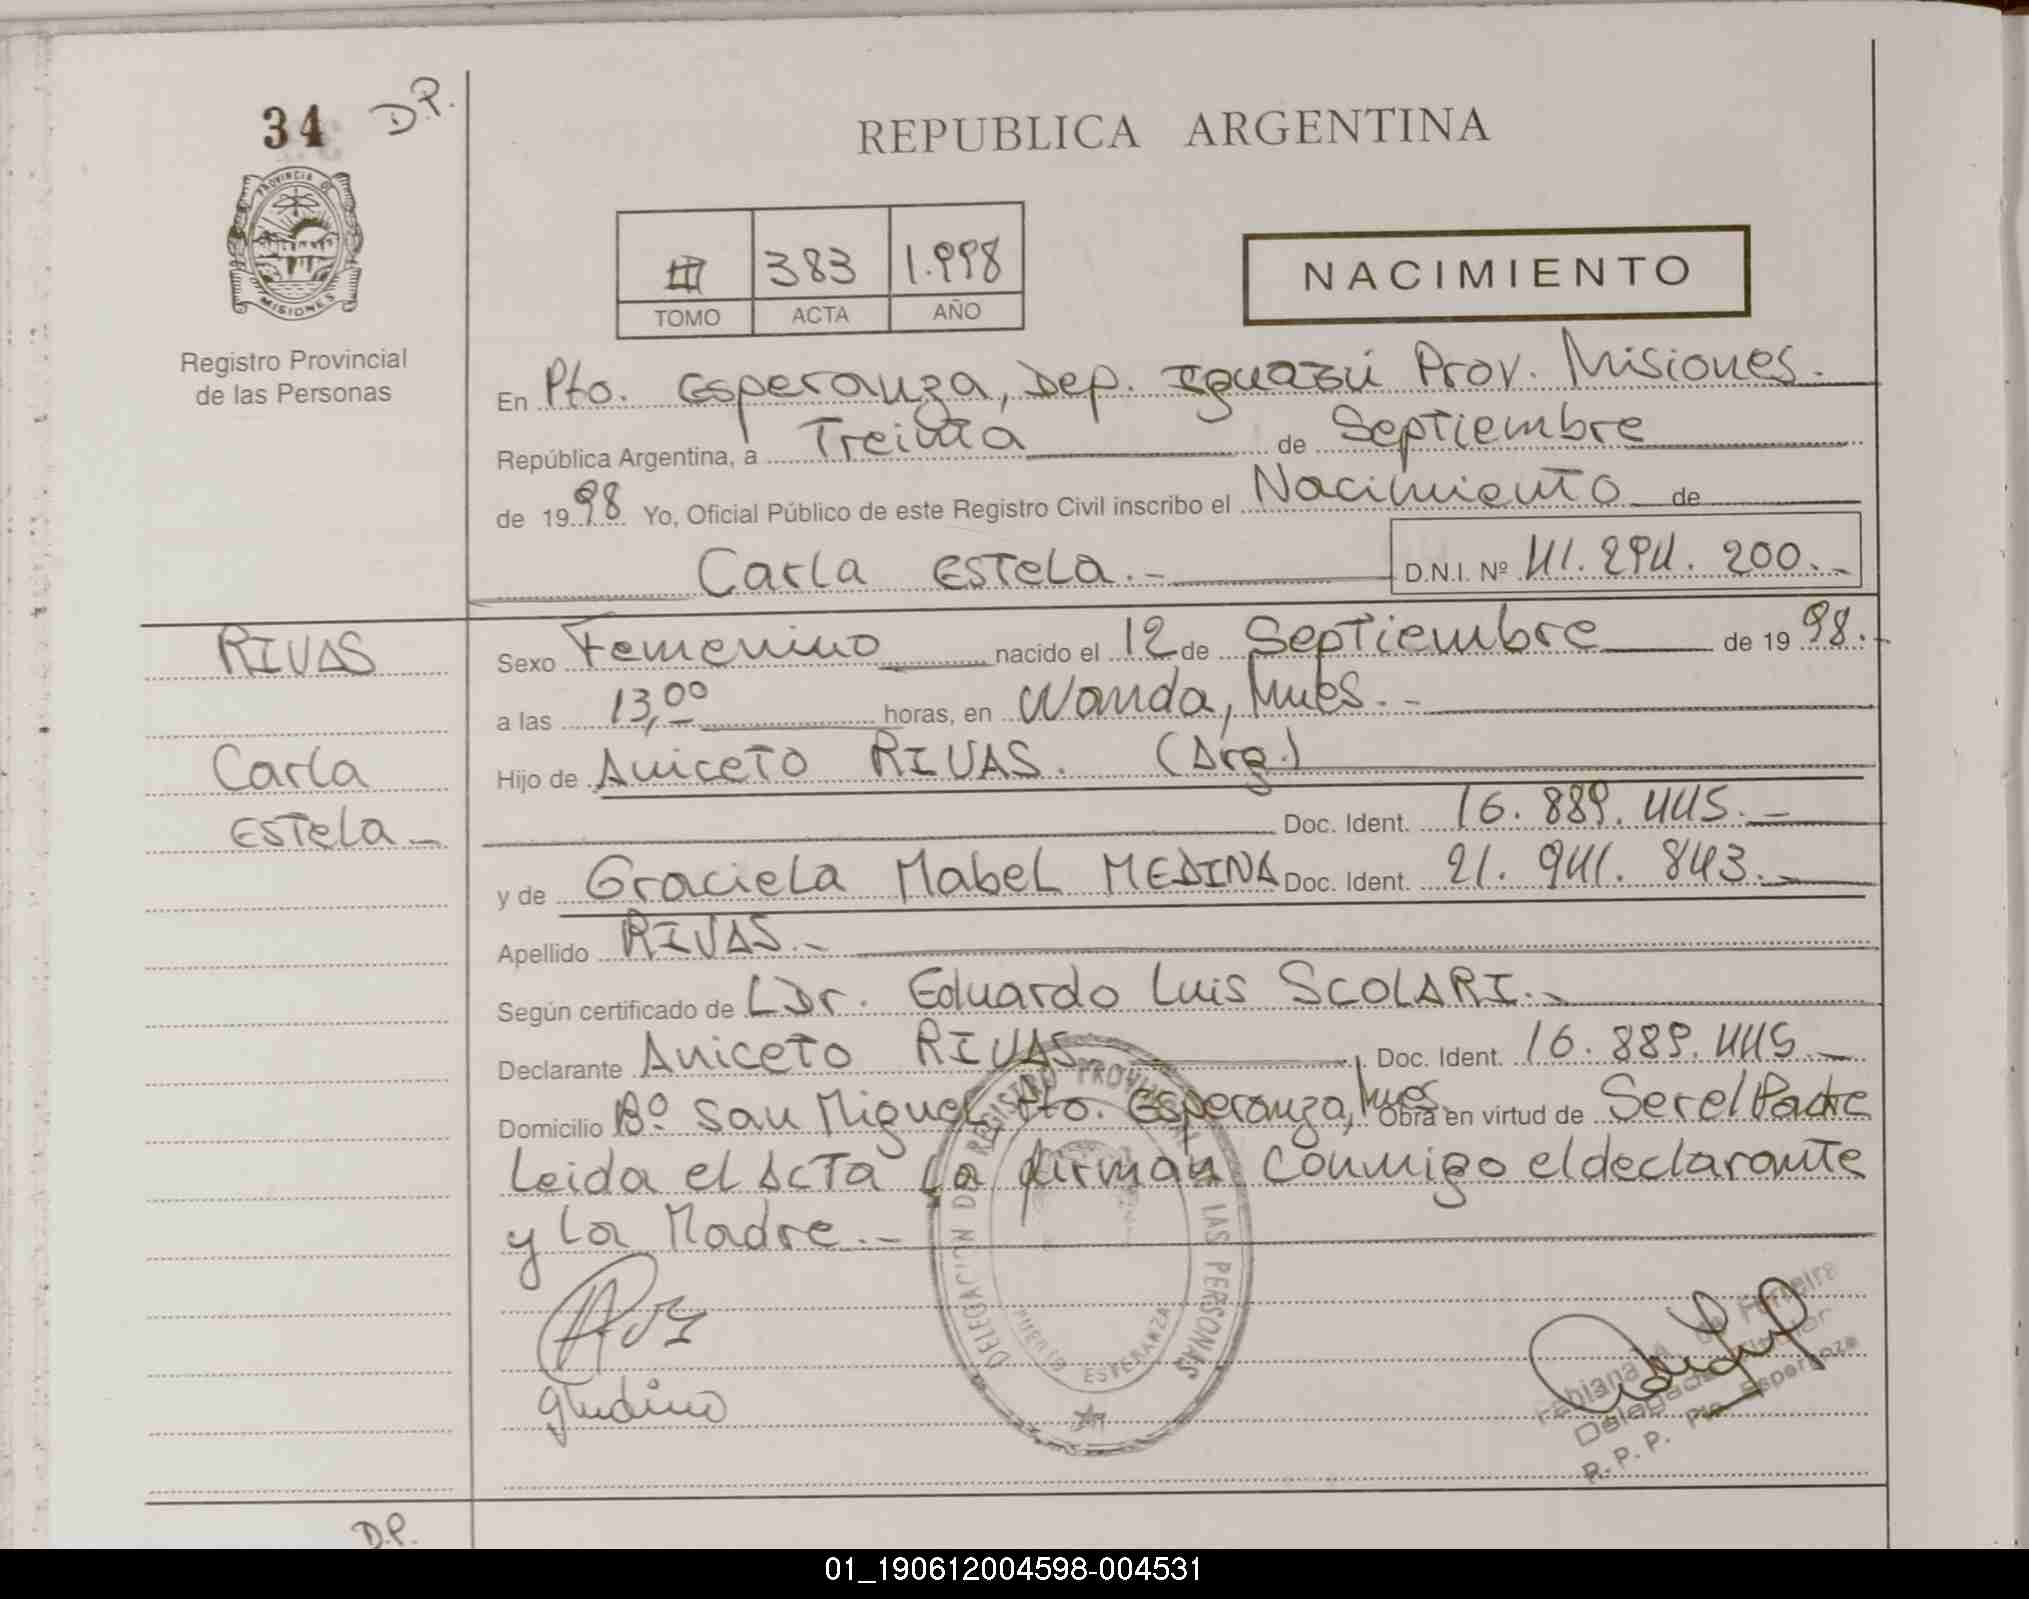 34 D.P.
PROVINCIA DE
MISIONES
Registro Provincial
de las Personas
REPUBLICA ARGENTINA
III 383 1.998
TOMO ACTA AÑO
NACIMIENTO
En Pto. Esperanza, Dep. Iguazú Prov. Misiones.
República Argentina, a Treinta de Septiembre
de 1998 Yo, Oficial Público de este Registro Civil inscribo el Nacimiento de
Carla Estela.- D.N.I. Nº 41.294.200.-
RIVAS
Carla
Estela-
Sexo Femenino nacido el 12 de Septiembre de 1998.-
a las 13,00 horas, en Wanda, Mnes.-
Hijo de Aniceto RIVAS. (Arg.)
Doc. Ident. 16.889.445.-
y de Graciela Mabel MEDINA Doc. Ident. 21.941.843.-
Apellido RIVAS.-
Según certificado de Dr. Eduardo Luis SCOLARI.-
Declarante Aniceto RIVAS Doc. Ident. 16.889.445.-
Domicilio Bº San Miguel, Pto. Esperanza, Mnes. Obra en virtud de Ser el Padre
Leida el Acta la firman conmigo el declarante
y la Madre.-
DELEGACION REGISTRO PROVINCIAL DE LAS PERSONAS
PUERTO ESPERANZA
Delegada Titular
R.P.P. Pto. Esperanza
D.P.
01_190612004598-004531